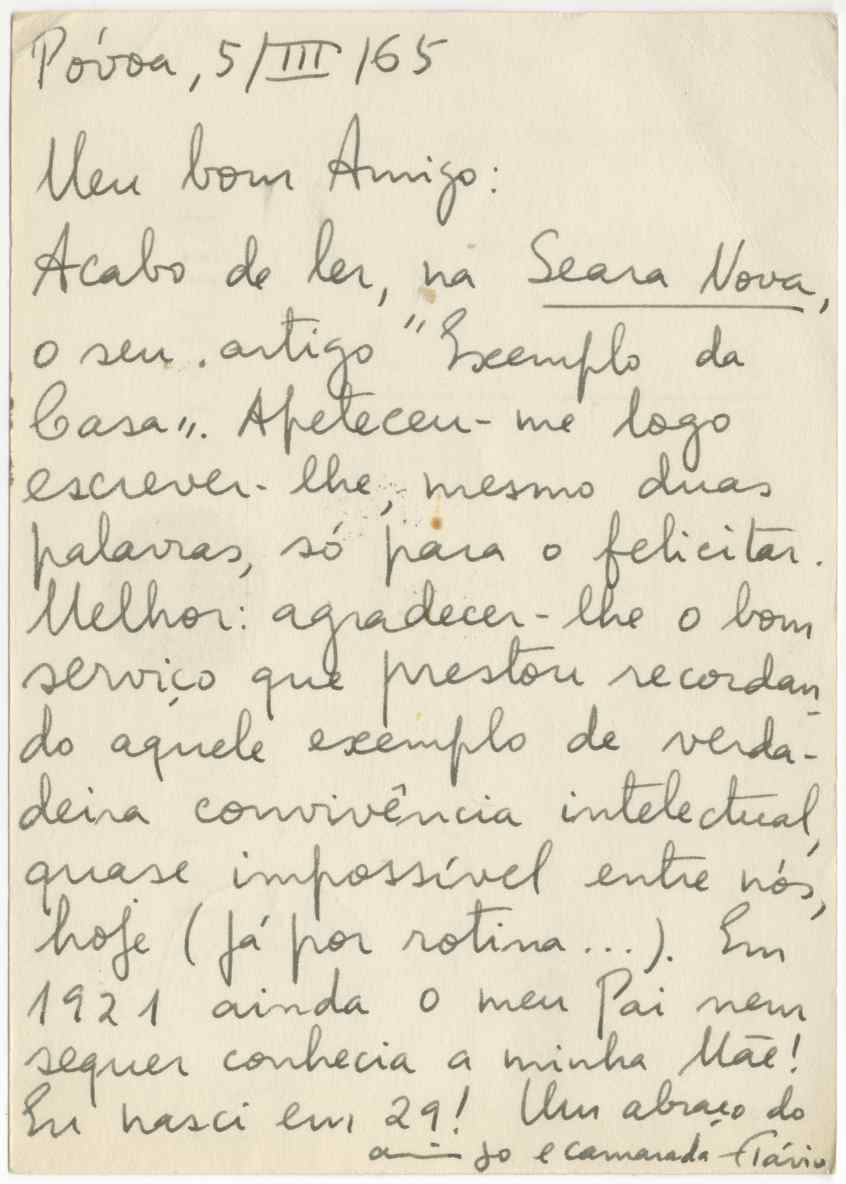 Póvoa, 5/III/65
Meu bom Amigo:
Acabo de ler, na Seara Nova,
o seu artigo "Exemplo da
Casa". Apeteceu-me logo
escrever-lhe, mesmo duas
palavras, só para o felicitar.
Melhor: agradecer-lhe o bom
serviço que prestou recordan-
do aquele exemplo de verda-
deira convivência intelectual,
quase impossível entre nós,
hoje (já por rotina...). Em
1921 ainda o meu Pai nem
sequer conhecia a minha Mãe!
Eu nasci em 29! Um abraço do
amigo e camarada Flávio